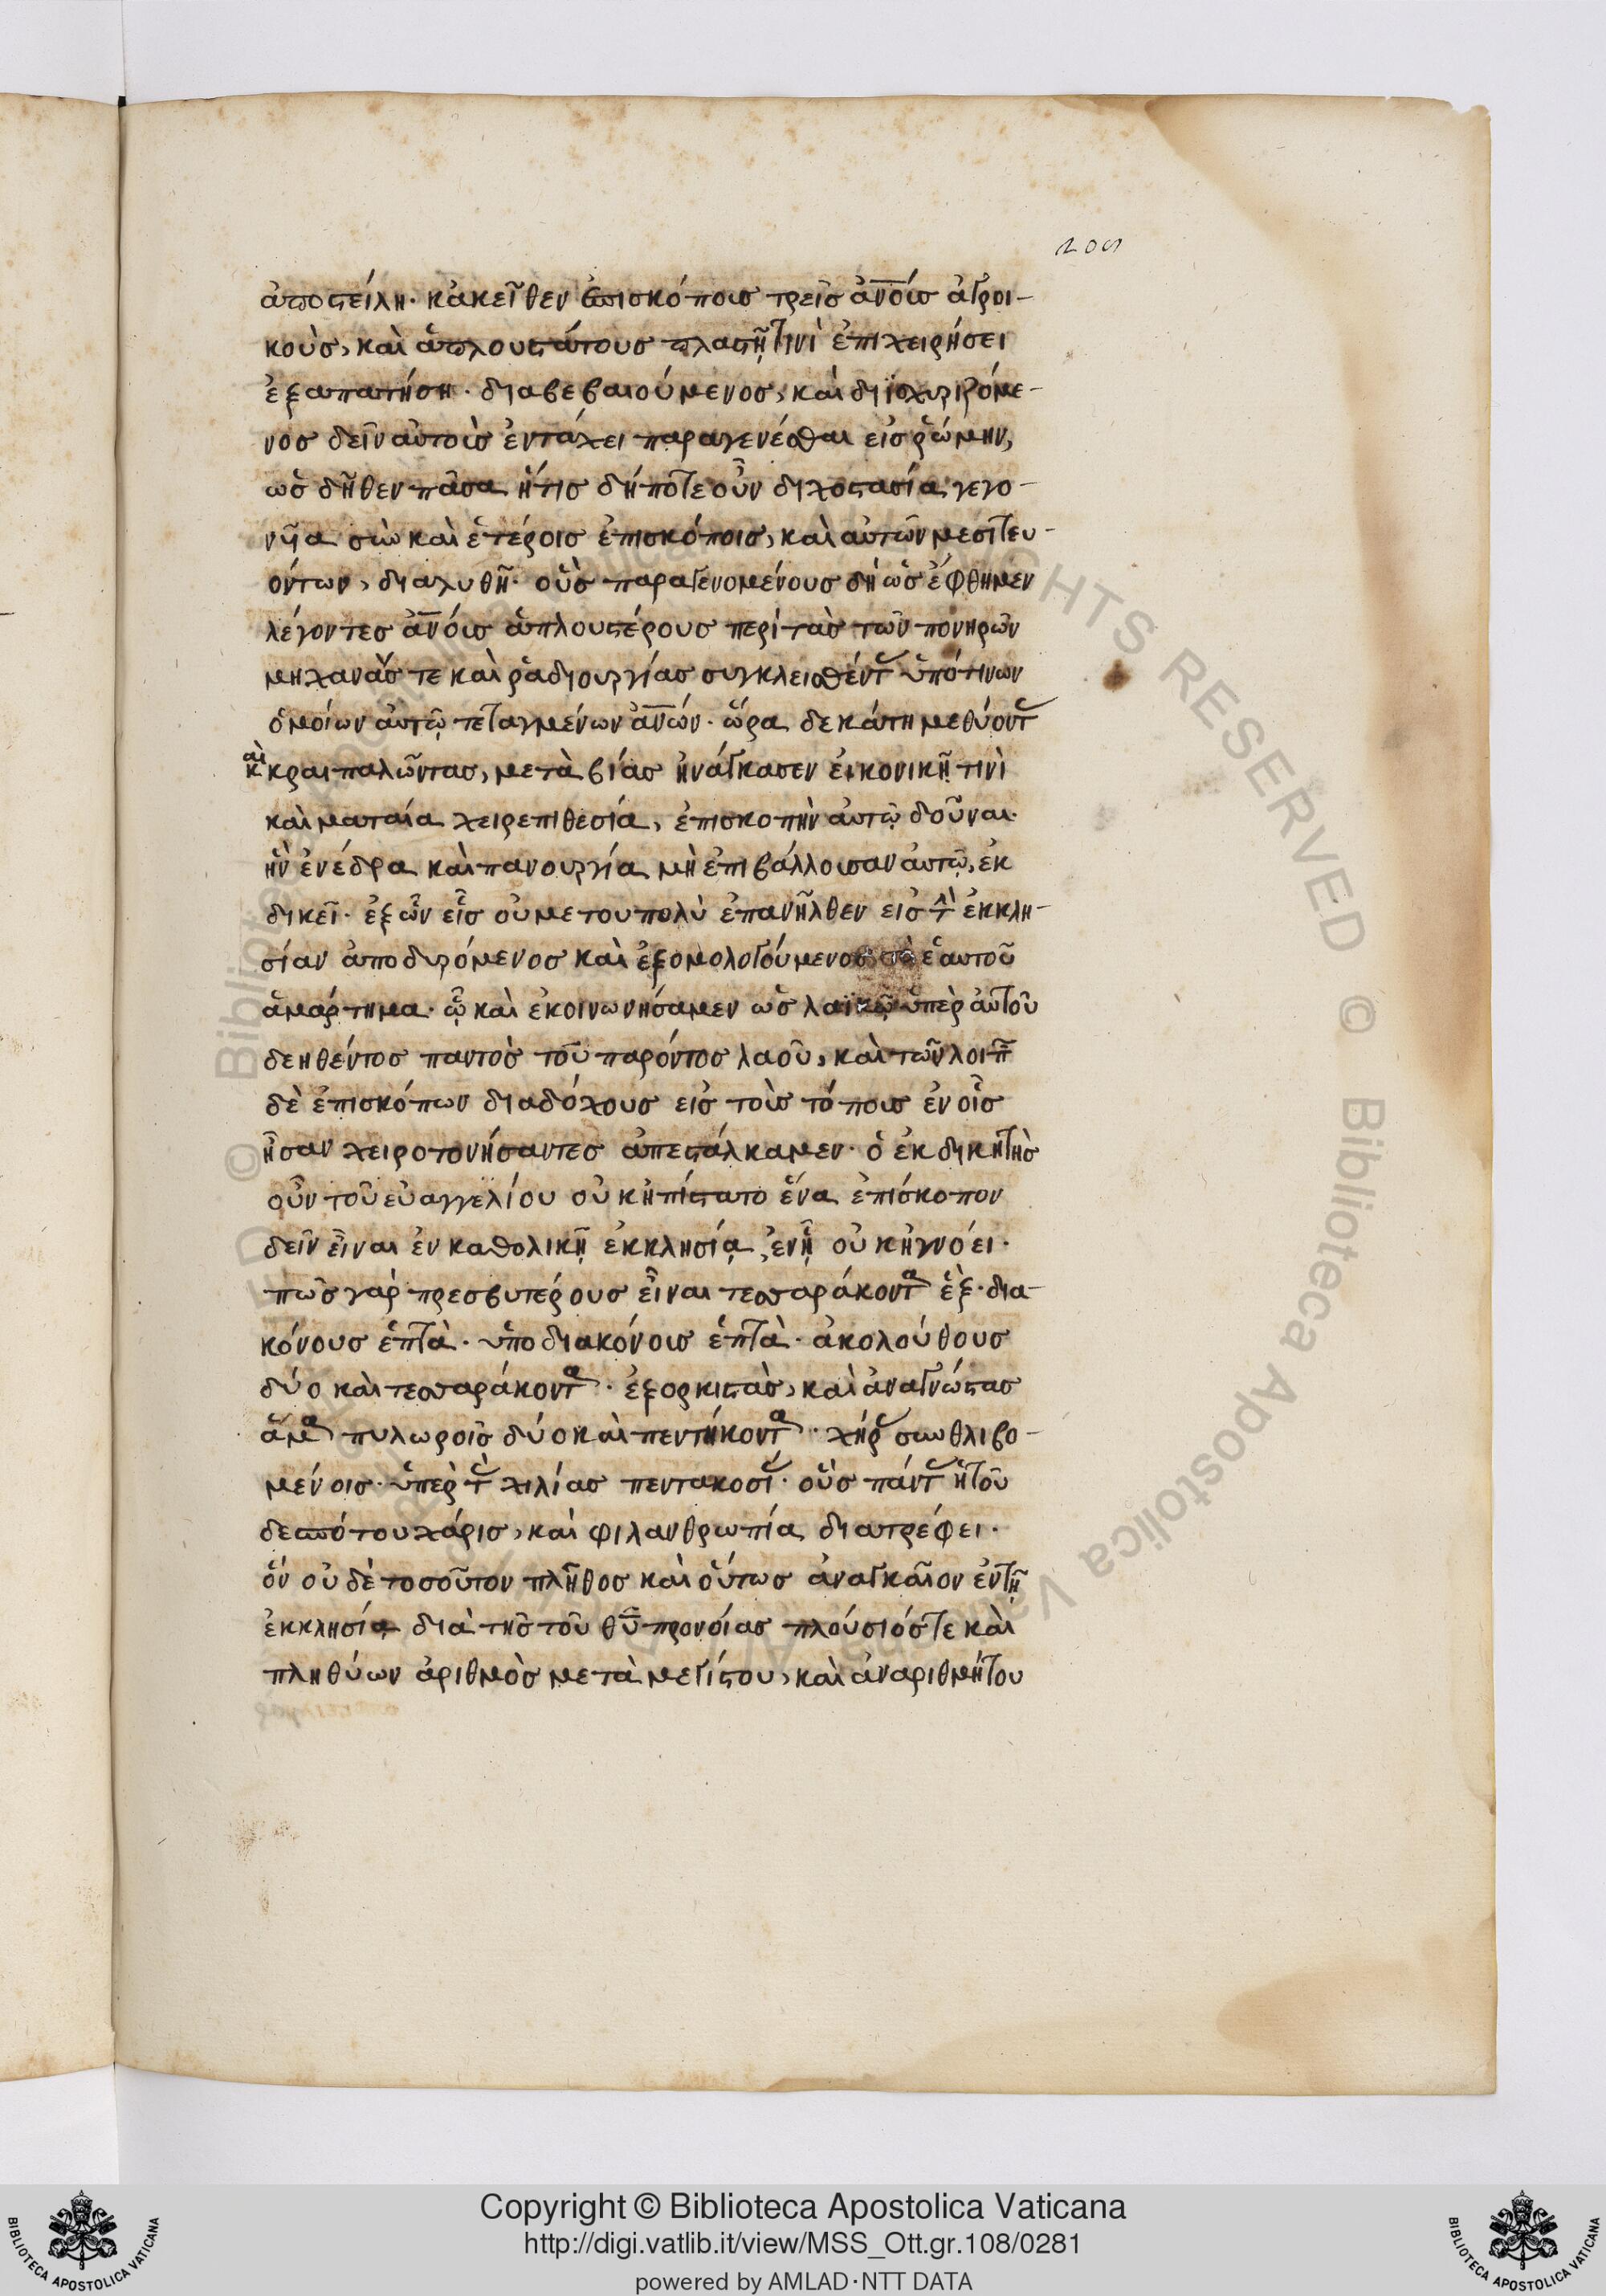 205
ἀποστείλη· κἀκεῖθεν ἐπισκόπους τρεῖς ἀν̅ους ἀγροι-
κοὺς, καὶ ἁπλουστάτους πλαστῆ τινὶ ἐπιχειρήσει
ἐξαπατήση· διαβεβαιούμενος, καὶ διϊσχυριζόμε-
νος δεῖν αὐτοὺς ἐντάχει παραγενέσθαι εἰς ῥώμην,
ὡς δῆθεν πᾶσα ἥτις δήποτε οὖν διχοστασία γεγο-
νῆα σὺν καὶ ἑτέροις ἐπισκόποις, καὶ αὐτῶν μεσιτευ-
όντων, διαλυθῆ· οὓς παραγενομένους δὴ ὡς ἔφθημεν
λέγοντες ἀν̅ους ἁπλουστέρους περὶ τὰς τῶν πονηρῶν
μηχανάς τε καὶ ῥαδιουργίας συγκλεισθέντ ὑπό τινων
ὁμοίων αὐτῷ τεταγμένων ἀν̅ων· ὥρα δεκάτη μεθύοντ
καὶ κραιπαλῶντας, μετὰ βίας ἠνάγκασεν εἰκονικῆ τινὶ
καὶ ματαία χειρεπιθεσία, ἐπισκοπὴν αὐτῷ δοῦναι·
ἣν ἐνέδρα καὶ πανουργία μὴ ἐπιβάλλουσαν αὐτῷ, ἐκ
δικεῖ· ἐξ ὧν εἷς οὐ μετουπολὺ ἐπανῆλθεν εἰς τὴν ἐκκλη-
σίαν ἀποδυρόμενος καὶ ἐξομολογούμενος τὸ ἑαυτοῦ
ἁμάρτημα· ᾧ καὶ ἐκοινωνήσαμεν ὡς λαϊκῷ ὑπὲρ αὐτοῦ
δεηθέντος παντὸς τοῦ παρόντος λαοῦ, καὶ τῶν λοιπ
δὲ ἐπισκόπων διαδόχους εἰς τοὺς τόπους ἐν οἷς
ἦσαν χειροτονήσαντες ἀπεστάλκαμεν· ὁ ἐκδικητὴς
οὖν τοῦ εὐαγγελίου οὐκ ἠπίστατο ἕνα ἐπίσκοπον
δεῖν εἶναι ἐν καθολικῇ ἐκκλησίᾳ, ἐν ᾗ οὐκ ἠγνόει·
πῶς γὰρ πρεσβυτέρους εἶναι τεσσαράκοντα ἓξ· δια-
κόνους ἑπτὰ· ὑποδιακόνους ἑπτὰ· ἀκολούθους
δύο καὶ τεσσαράκοντα· ἐξορκιστὰς, καὶ ἀναγνώστας
ἅμα πυλωροῖς δύο καὶ πεντήκοντα· χήρ σὺν θλιβο-
μένοις· ὑπὲρ τ χιλίας πεντακοσί· οὓς πάντ ἡ τοῦ
δεσπότου χάρις, καὶ φιλανθρωπία διατρέφει·
ὃν οὐδὲ τοσοῦτον πλῆθος καὶ οὕτως ἀναγκαῖον ἐν τῇ
ἐκκλησίᾳ διὰ τῆς τοῦ θ̅υ̅ προνοίας πλούσιός τε καὶ
πληθύων ἀριθμὸς μετὰ μεγίστου, καὶ ἀναριθμήτου
Copyright © Biblioteca Apostolica Vaticana
http://digi.vatlib.it/view/MSS_Ott.gr.108/0281
powered by AMLAD·NTT DATA